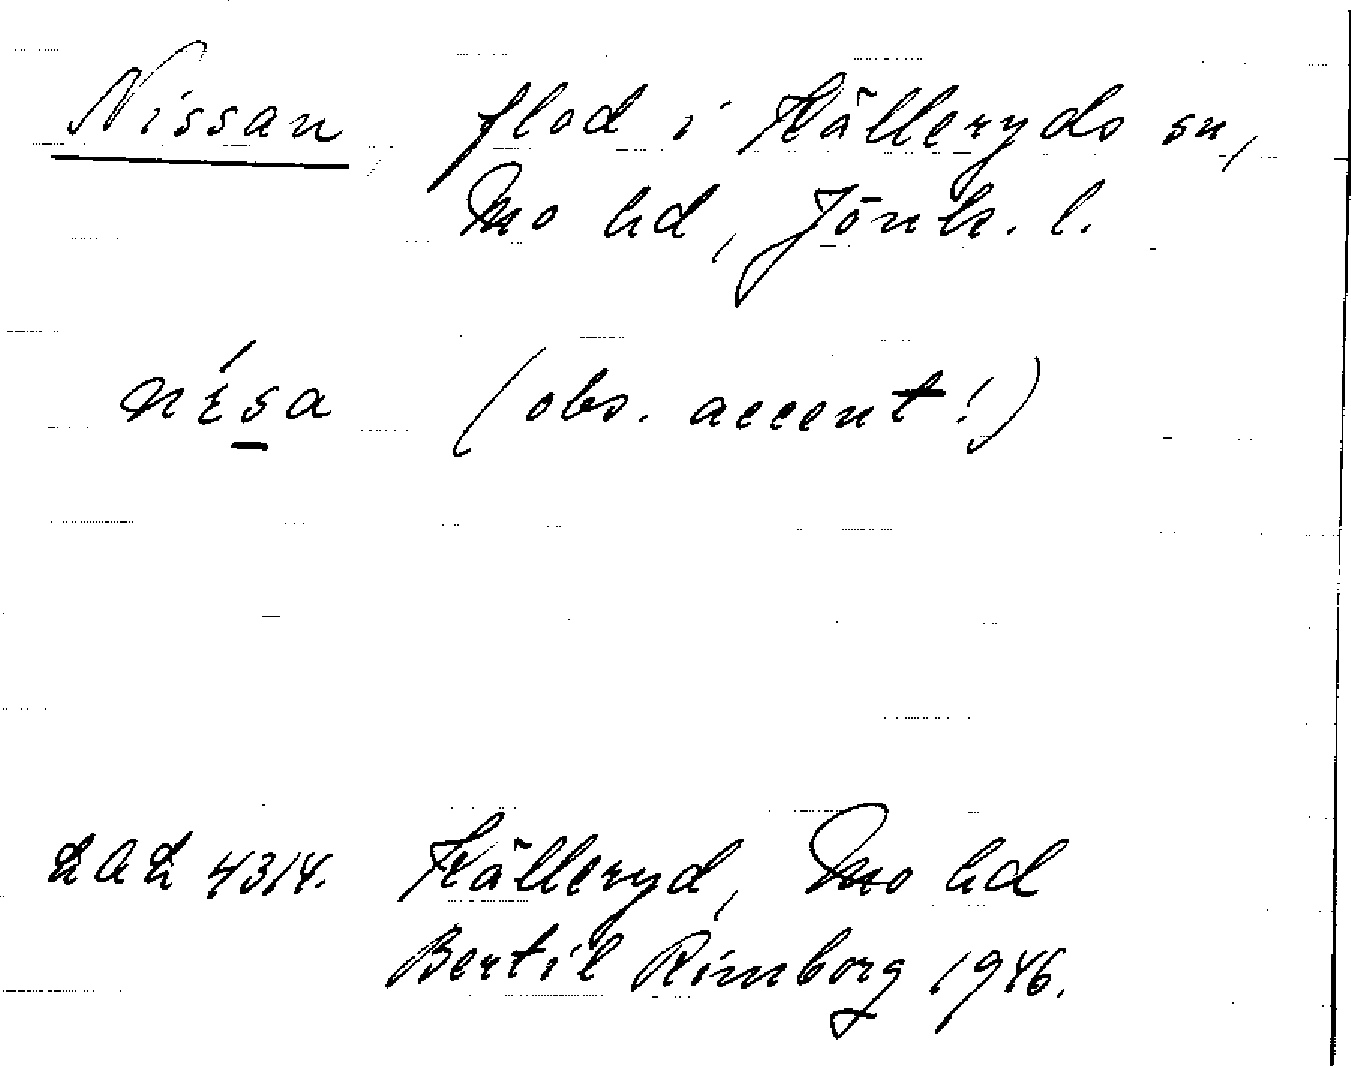 Nissan, flod i Källeryds sn,
Mo hd, Jönk. l.
nɛ́s̠a (obs. accent!)
LAL 4314. Källeryd, Mo hd
Bertil Rimborg 1946.